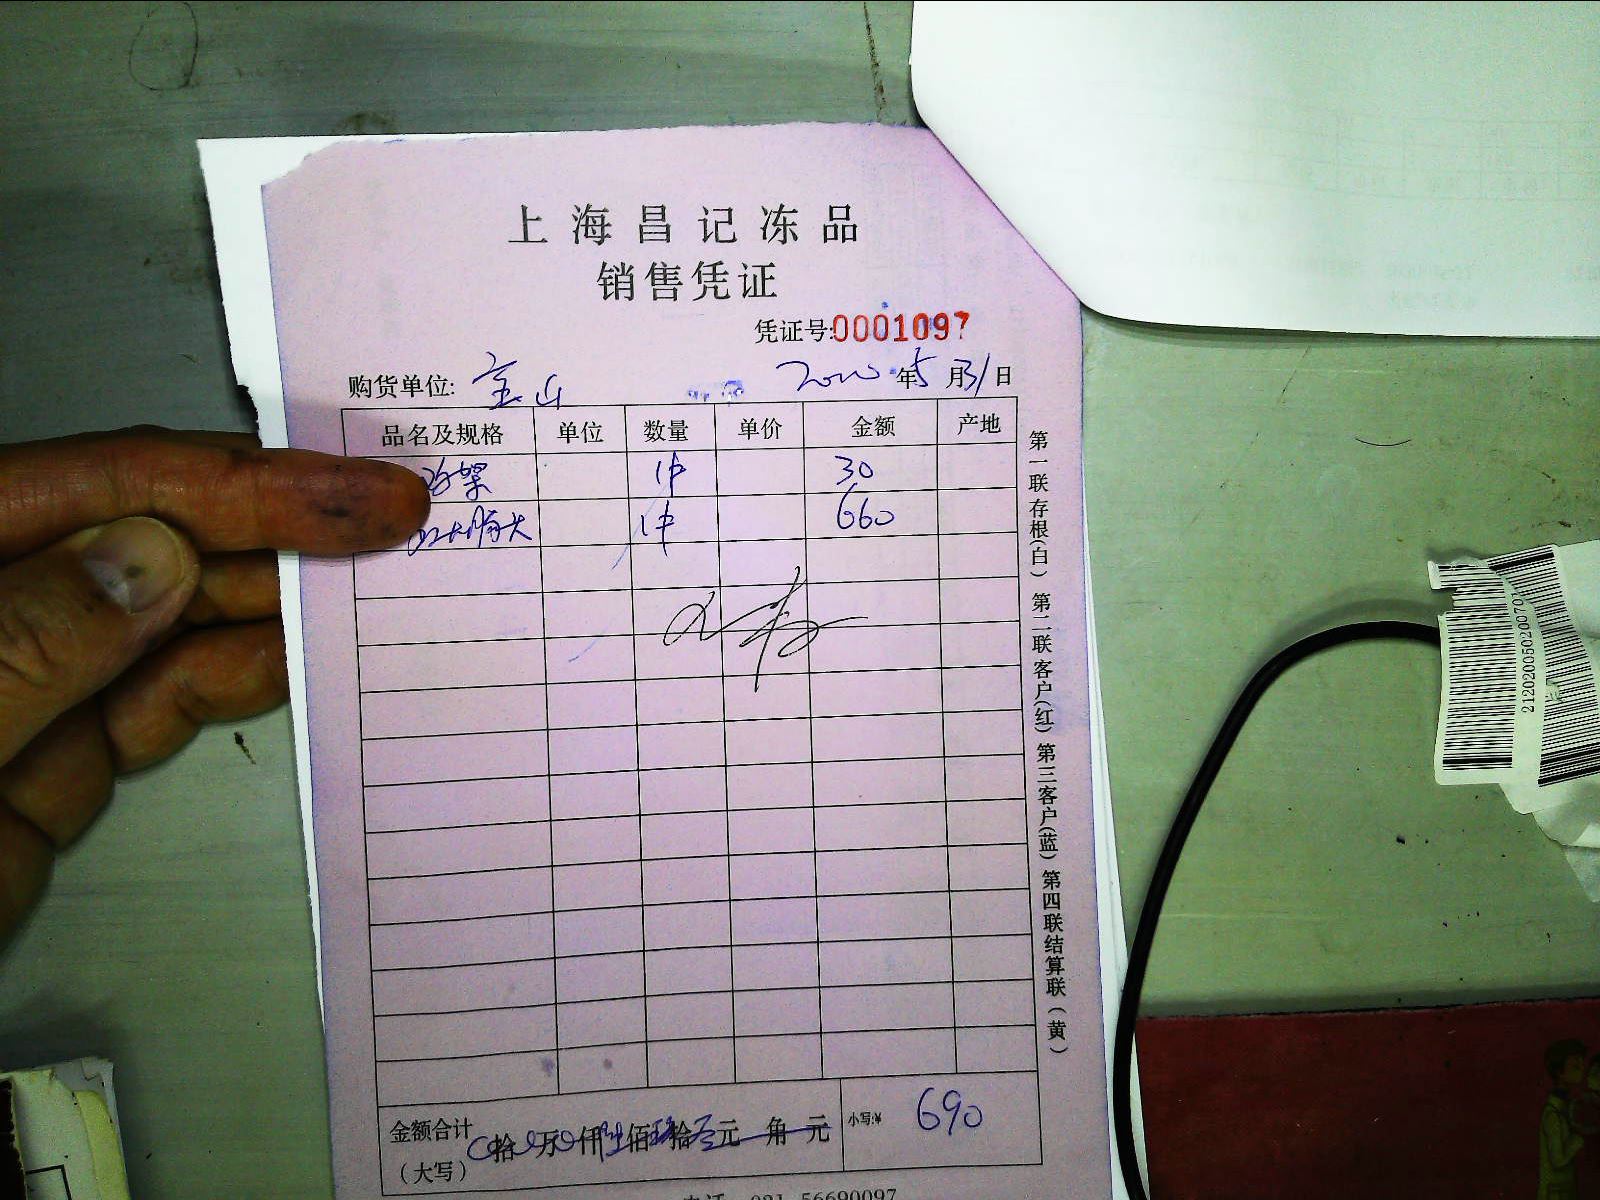 上海昌记冻品
销售凭证
凭证号:0001097
购货单位: 宝山 2020年5月31日
品名及规格 单位 数量 单价 金额 产地
鸡架 1件 30
大肠头 1件 660
金额合计 拾 万 仟陆佰玖拾元 角 元 小写:¥ 690
(大写)
电话 021-56690097
第一联存根(白) 第二联客户(红) 第三联客户(蓝) 第四联结算联(黄)
212020050200701